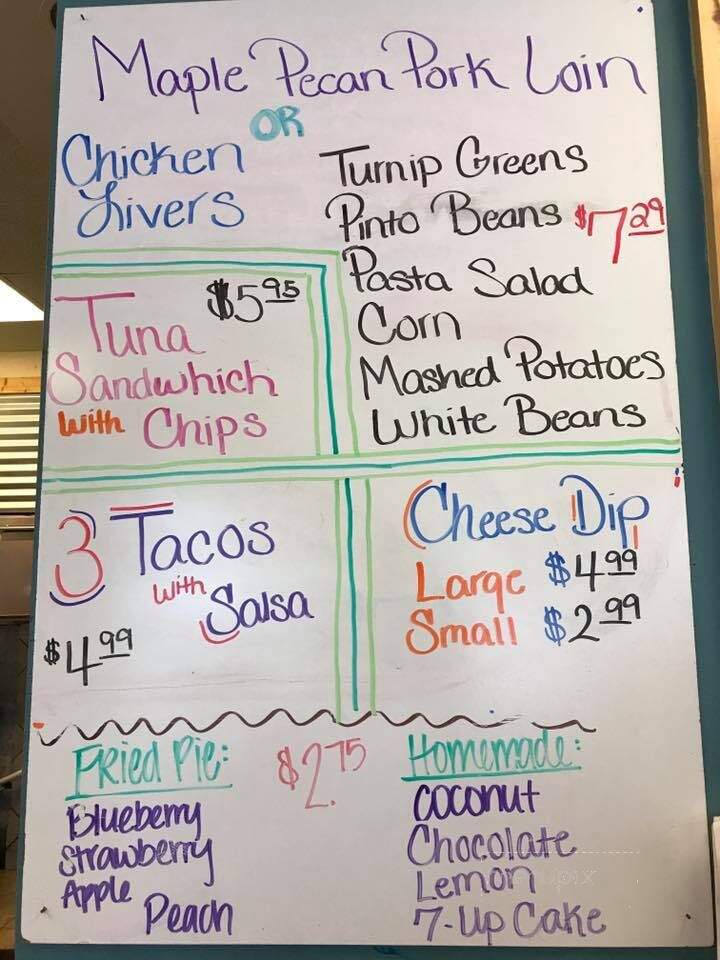 Maple Pecan Pork Loin
OR
Chicken
Livers
Turnip Greens
Pinto Beans $7.29
Pasta Salad
Corn
Mashed Potatoes
White Beans
$5.95
Tuna
Sandwhich
with Chips
3 Tacos
with Salsa
$4.99
Cheese Dip
Large $4.99
Small $2.99
Fried Pie: $2.75
Blueberry
Strawberry
Apple
Peach
Homemade:
Coconut
Chocolate
Lemon
7-Up Cake